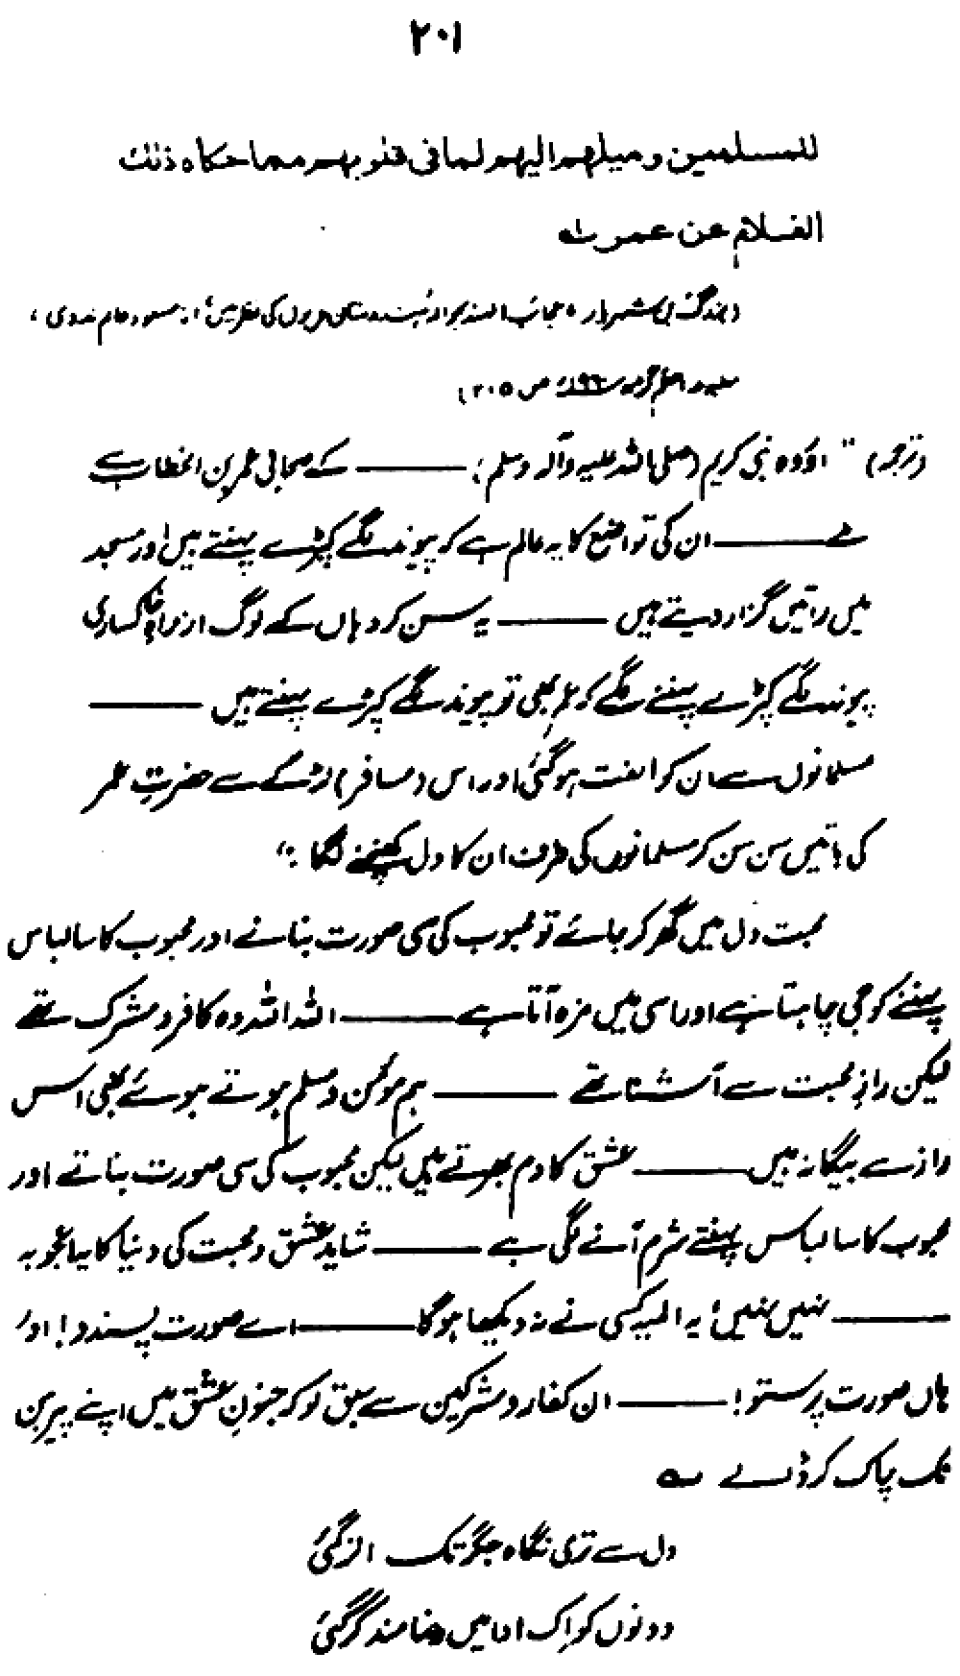 ۲۰۱
للمسلمين وميلهم اليهم لما فى قلوبهم مما حكاه ذلك
الغلام عن عمر
(بزرگ بن شہریار، عجائب الہند بحوالہ ہندوستان عربوں کی نظر میں، از مسعود عالم ندوی،
ص ۲۰۵)
(ترجمہ) "اور وہ نبی کریم (صلی اللہ علیہ وآلہ وسلم) ——— کے صحابی عمر بن الخطاب
——— ان کی تواضع کا یہ عالم ہے کہ پیوند لگے کپڑے پہنتے ہیں اور مسجد
میں راتیں گزار دیتے ہیں ——— یہ سن کر وہاں کے لوگ ازراہِ خاکساری
پیوند لگے کپڑے پہننے لگے کہ عمر بھی تو پیوند لگے کپڑے پہنتے ہیں ———
مسلمانوں سے ان کو الفت ہوگئی اور اس (مسافر) لڑکے سے حضرتِ عمر
کی باتیں سن سن کر مسلمانوں کی طرف ان کا دل کھنچنے لگا۔"
محبت دل میں گھر کر جائے تو محبوب کی سی صورت بنانے اور محبوب کا سا لباس
پہننے کو جی چاہتا ہے اور اسی میں مزہ آتا ہے ——— اللہ اللہ وہ کافر و مشرک تھے
لیکن رازِ محبت سے آشنا تھے ——— ہم مومن و مسلم ہوتے ہوئے بھی اس
راز سے بیگانہ ہیں ——— عشق کا دم بھرتے ہیں لیکن محبوب کی سی صورت بناتے اور
محبوب کا سا لباس پہنتے شرم آنے لگی ہے ——— شاید عشق و محبت کی دنیا کا یہ اعجوبہ
——— نہیں نہیں! یہ المیہ کسی نے نہ دیکھا ہوگا ——— اے صورت پسندو! اور
ہاں صورت پرستو! ——— ان کفار و مشرکین سے سبق لو کہ جنونِ عشق میں اپنے پیرہن
تک چاک کر ڈالے ؎
دل سے تری نگاہ جگر تک اتر گئی
دونوں کو اک ادا میں رضامند کر گئی